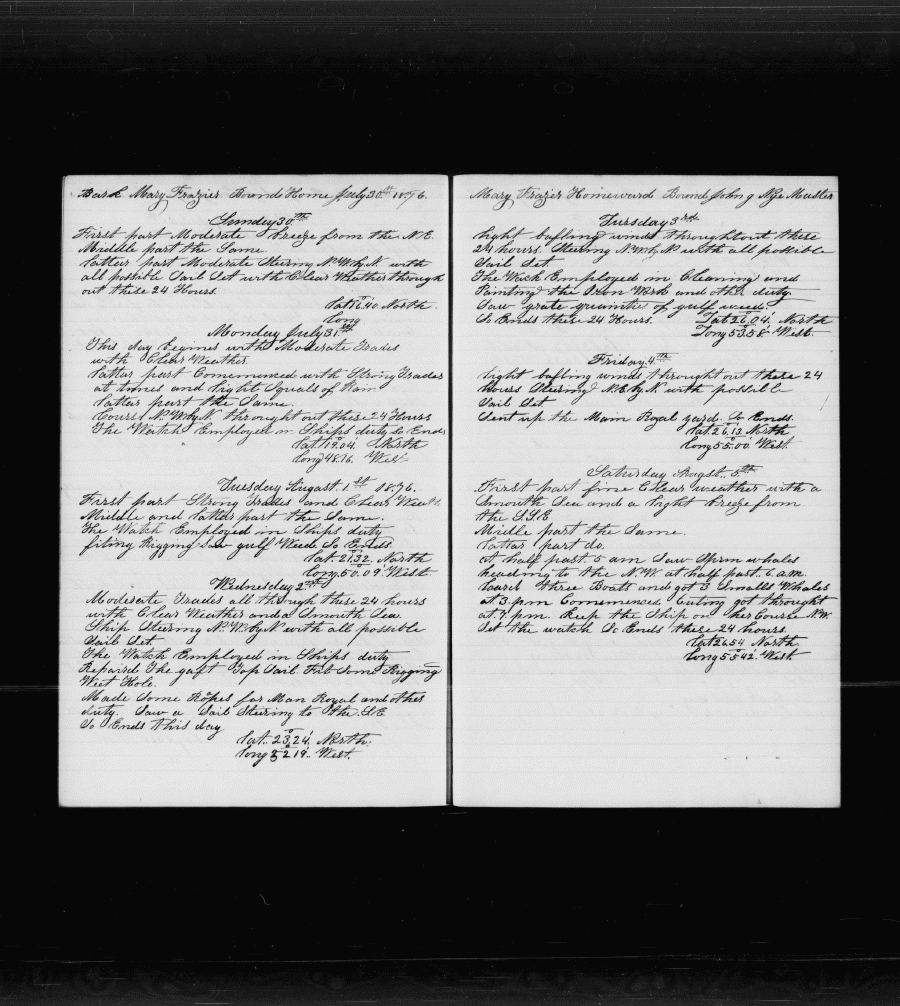 Bark Mary Frazier Bound Home July 30th 1876.
Sunday 30th
First part Moderate breeze from the N.E.
Middle part the Same
lattar part Moderate Stering N.W.by.N with
all possible Sail Set with Clear Weather through
out these 24 Hours.
Lat 16.40 North
Long
Monday July 31st
This day begines with Moderate Trades
with Clear Weather
lattar part Comemenced with Strong Trades
at times and light Squals of Rain
lattar part the Same.
Course N. W.by.N throught out these 24 Hours
The Watch Employed in Ships duty So Ends
Lat 19.04 North
Long 48.16. West
Tuesday August 1st 1876.
First part Strong Trades and Clear Weath
Middle and lattar part the Same.
The Watch Employed in Ships duty
fiting Rigging Saw gulf Weed So Ends
Lat. 21.32. North
Long. 50.09. West
Wednesday 2nd
Moderate Trades all through these 24 hours
with Clear Weather and a Smouth Sea.
Ship Stering N. W.by.N with all possible
Sail Set
The Watch Employed in Ships duty
Repaired The gaft Top Sail. Fit Some Rigging
West Hole.
Made Some Ropes for Man Royal and other
duty. Saw a Sail Stering to the S.E
So Ends this day
Lat. 23.24. North.
Long 52 19. West.
Mary Frazier Homeward Bound John g Nye Master
Tuesday 3rd
light bafling winds throughtout these
24 hours. Stering N.W.by.N with all possible
Sail Set
The Wach Employed in Cleaning and
Painting the Iron Werk and othr duty.
Saw grate quantite of gulf weed.
So Ends these 24 Hours.
Lat 26.04. North
Long 53.58. West.
Friday 4th
light bafling winds throught out these 24
hours Stering N.E.by.N with possible
Sail Set
Sent up the Main Royal yard. So Ends.
Lat. 26.13 North
Long 55.00. West
Saturday August. 5th
First part fine Clear weather with a
Smouth Sea and a light breeze from
the S.S.E
Middle part the Same.
lattar part do.
At half past 5 am Saw Sprm whales
heading to the N.W. at half past 6 a.m.
loard three Boats and got 3 Smalls Whales
at 3. p.m Comemenced Cuting got throught
at 7. p.m. Keep the Ship on her Course N.W.
Set the watch So Ends these 24 hours.
Lat 26.54 North
Long 55.42. West.